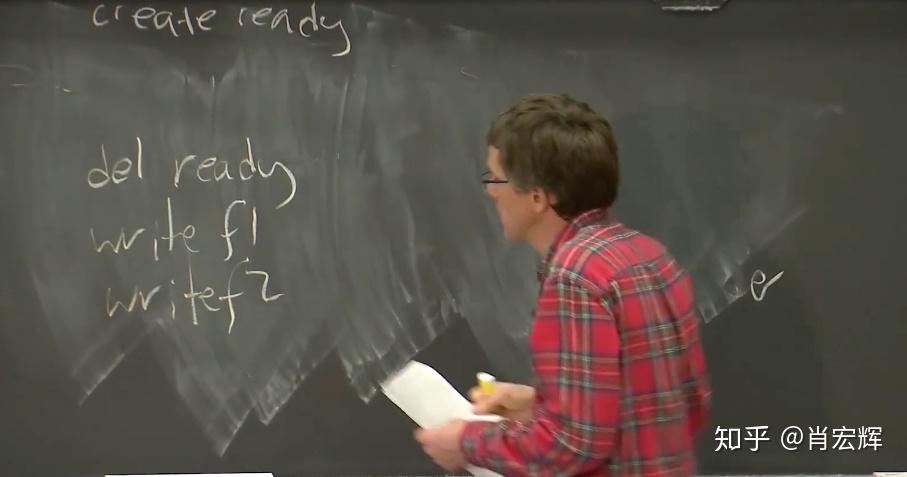 create ready
del ready
write f1
write f2
知乎 @肖宏辉